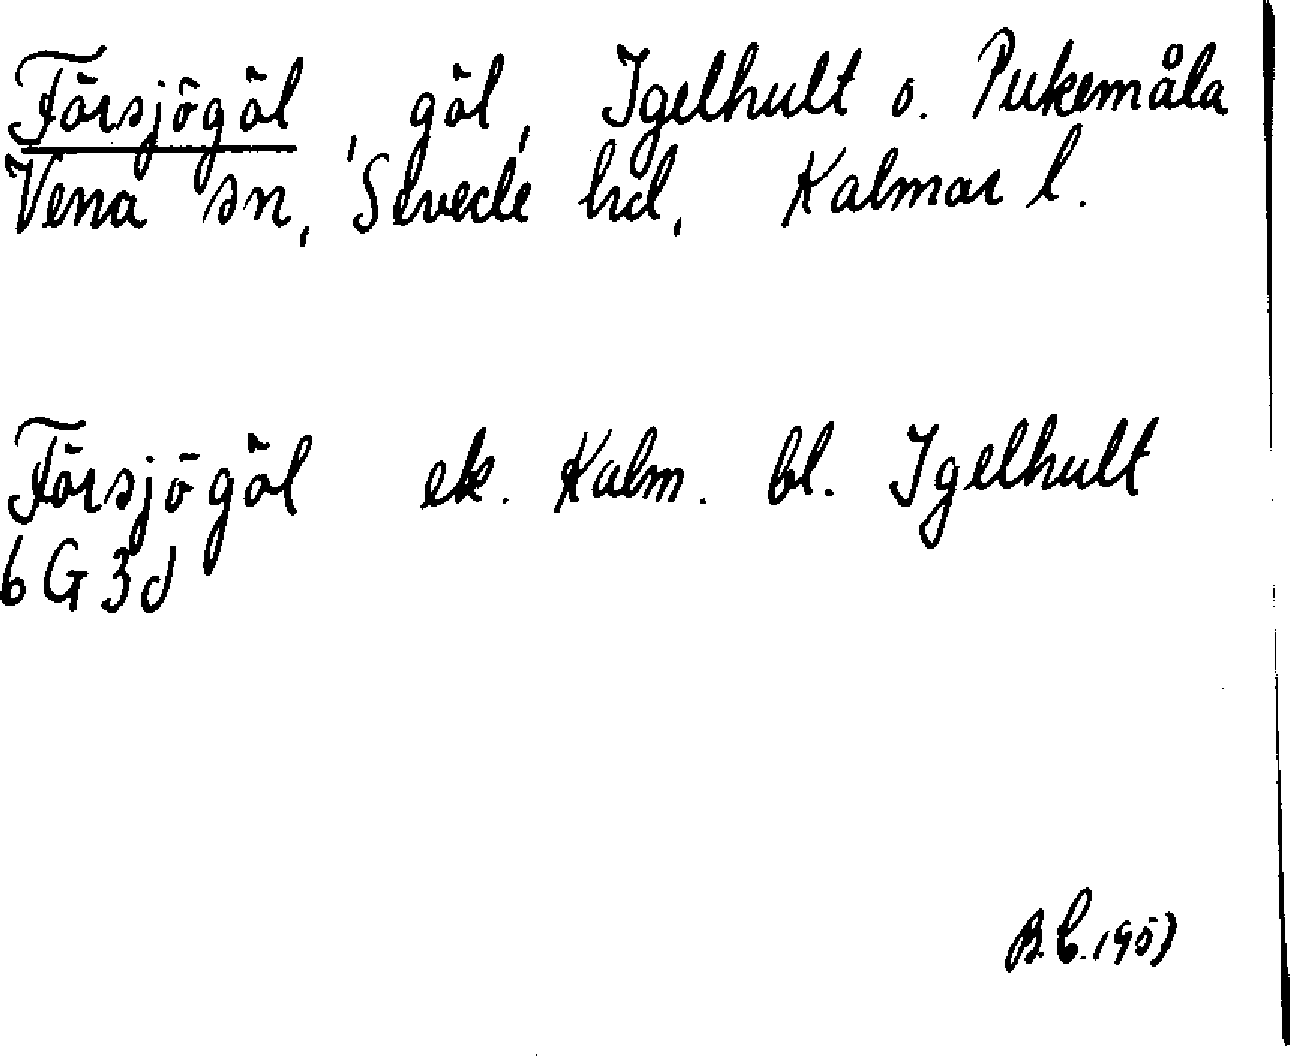 Försjögöl, göl, Igelhult o. Pukemåla
Vena sn, Sevede hd, Kalmar l.
Försjögöl ek. Kalm. bl. Igelhult
6G3d